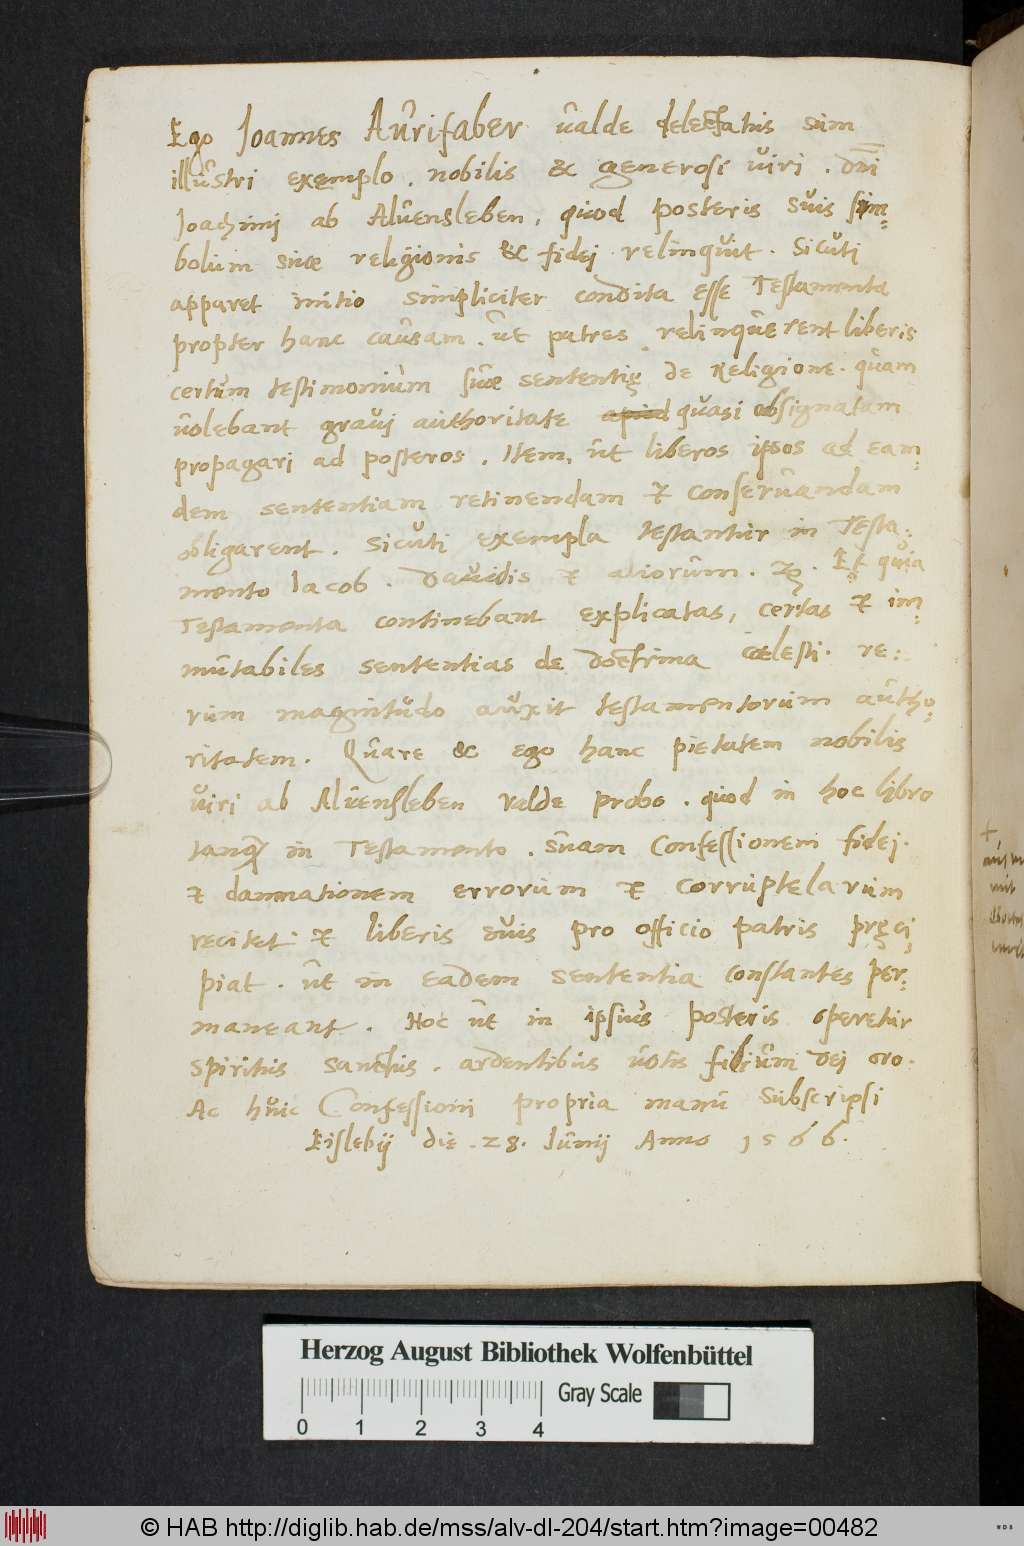 Ego Joannes Aurifaber ualde delectatus sum
illustri exemplo, nobilis & generosi viri, dñi
Joachimj ab Aluensleben, quod posteris suis sim=
bolum suæ religionis & fidej relinquit. Sicuti
apparet initio simpliciter condita esse Testamenta
propter hanc causam, ut patres relinquerent liberis
certum testimonium suæ sententię de Religione, quam
uolebant grauj authoritate quasi obsignatam
propagari ad posteros. Item, ut liberos ipsos ad eam=
dem sententiam retinendam et conseruandam
obligarent. Sicuti exempla testantur in Testa=
mento Jacob. Dauidis et aliorum. Et quia
Testamenta continebant explicatas, certas et im=
mutabiles sententias de doctrina cælesti. re=
rum magnitudo auxit testamentorum autho=
ritatem. Quare & ego hanc pietatem nobilis
viri ab Aluensleben valde probo, quod in hoc libro
tanq̃ in Testamento, suam Confessionem fidej.
et damnationem errorum et corruptelarum
recitet et liberis suis pro officio patris pręci=
piat, ut in eadem sententia constantes per=
maneant. Hoc ut in ipsius posteris operetur
spiritus sanctus, ardentibus uotis filium Dej oro.
Ac huic Confessioni propria manu subscripsi
Eislebij die 28. Junij Anno 1566.
mit
Herzog August Bibliothek Wolfenbüttel
0 1 2 3 4 Gray Scale
© HAB http://diglib.hab.de/mss/alv-dl-204/start.htm?image=00482